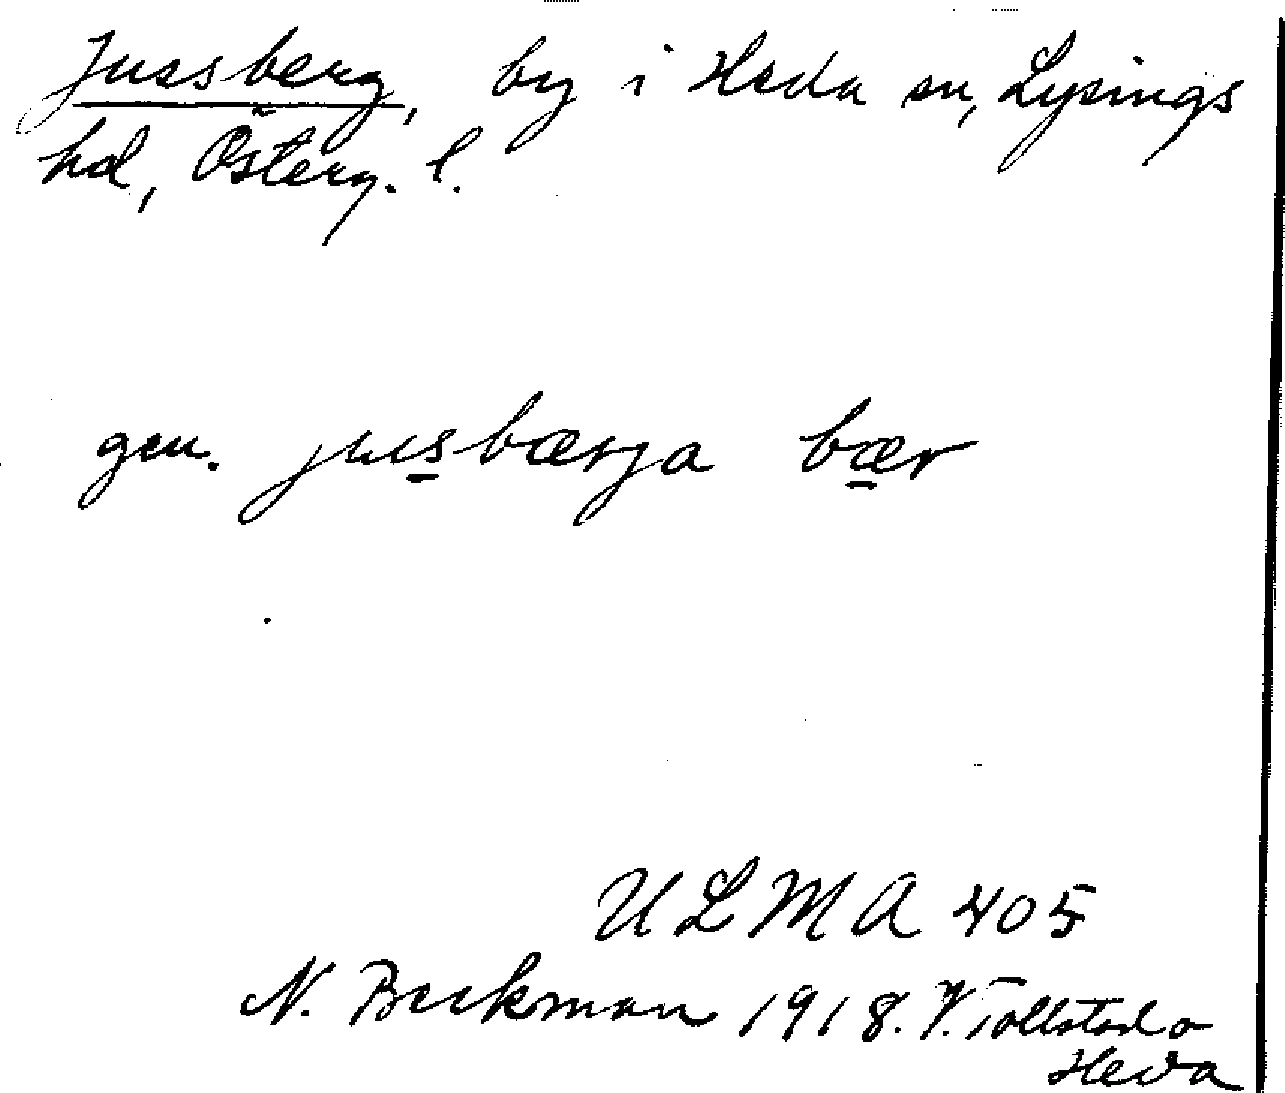 Jussberg, by i Heda sn, Lysings
hd, Österg. l.
gen. jusbærja bær
ULMA 405
N. Beckman 1918. V. Tollstad o
Heda